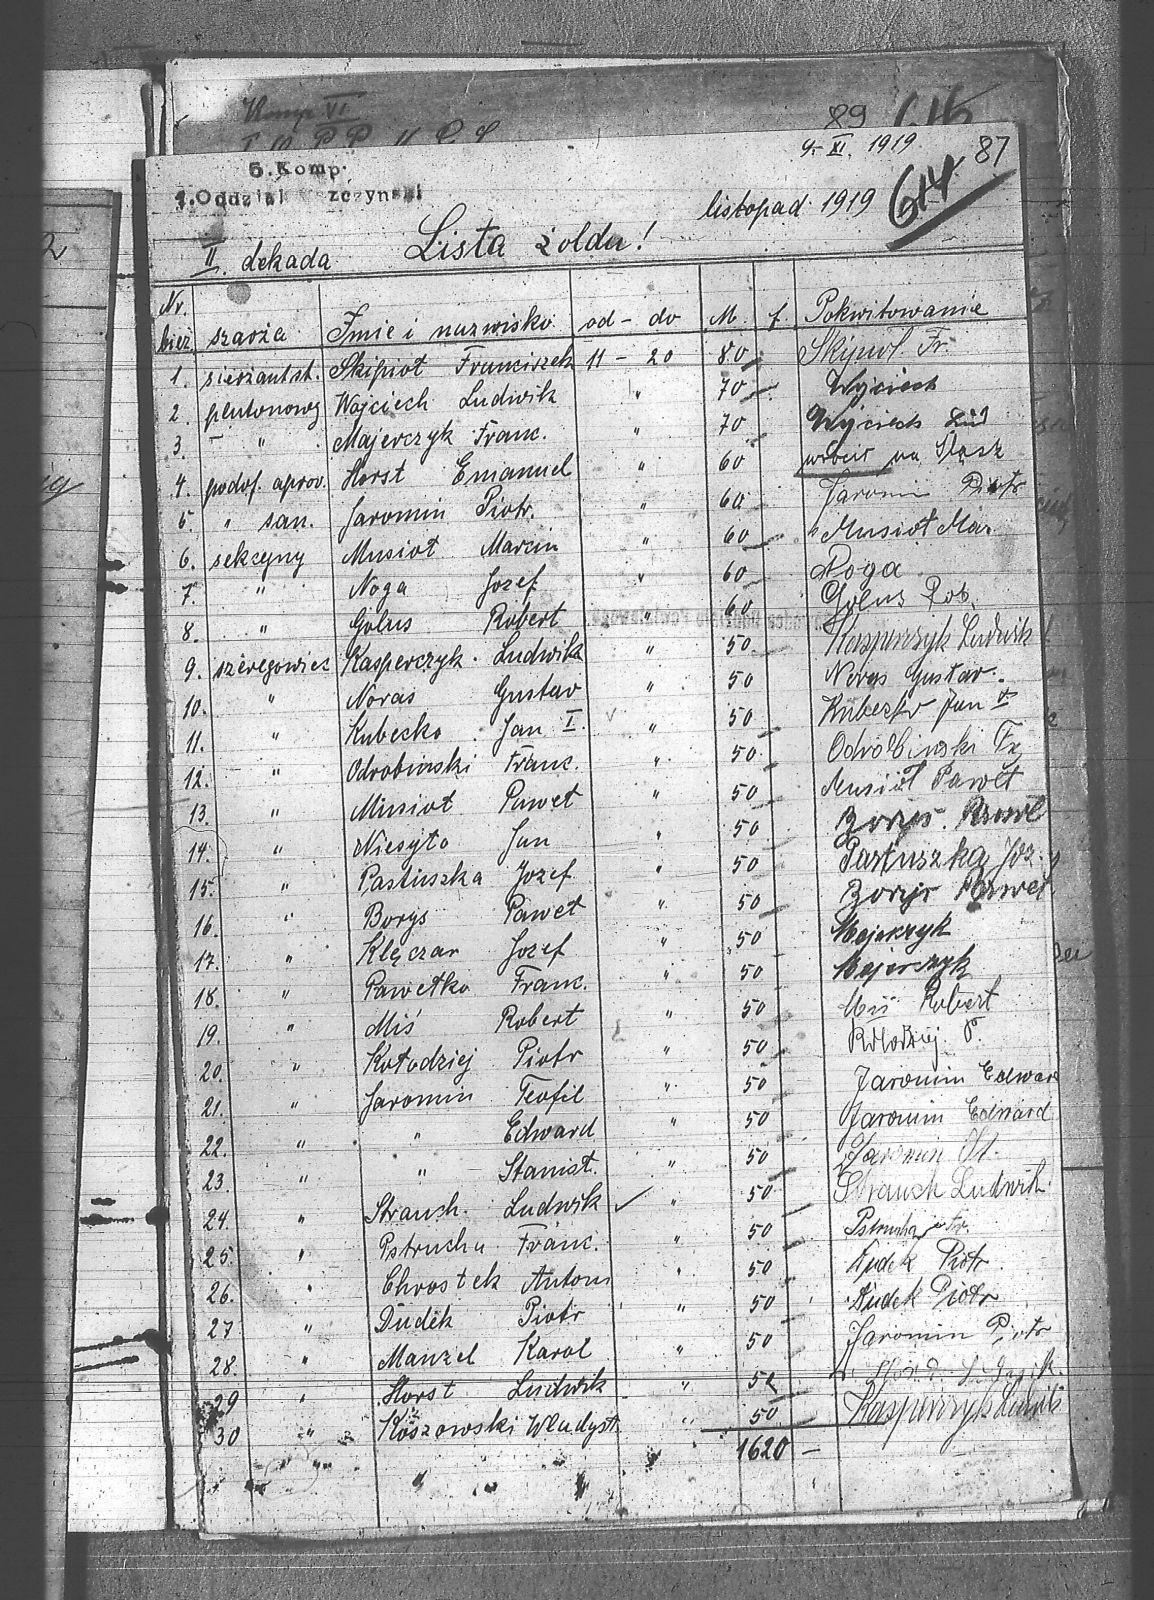 Komp VI
89 616
9. XI. 1919 87
5. Komp.
1. Oddział
listopad 1919 614
II. dekada Lista żołdu!
Nr. bież. szarża Imie i nazwisko od - do M. f. Pokwitowanie
1. sierżant st. Skipioł Franciszek 11 - 20 80 Skipioł Fr.
2. plutonowy Wojciech Ludwik " 70 Wojciech
3. " Majerczyk Franc. " 70 Wojciech Lud
4. podof. aprow. Horst Emanuel " 60 na Śląsk
5. " san. Jaromin Piotr. " 60 Jaromin Piotr
6. sekcyny Musioł Marcin " 60 Musioł Mar.
7. " Noga Jozef " 60 Noga
8. " Golus Robert " 60 Golus Rob.
9. szeregowiec Kasperczyk Ludwik " 50 Kasperczyk Ludwik
10. " Noras Gustav " 50 Noras Gustav.
11. " Kubecko Jan I. " 50 Jan
12. " Odrobinski Franc. " 50 Odrobinski Fr
13. " Musioł Paweł " 50 Musioł Paweł
14. " Niesyto Jan " 50 Borys. Paweł
15. " Pastuszka Jozef " 50 Pastuszka Joz.
16. " Borys Paweł " 50 Borys Paweł
17. " Klęczar Jozef " 50 Majerczyk
18. " Pawełko Franc. " 50 Majerczyk
19. " Miś Robert " 50 Miś Robert
20. " Kołodziej Piotr " 50 Kołodziej P.
21. " Jaromin Teofil " 50 Jaromin Edward
22. " " Edward " 50 Jaromin Edward
23. " " Stanisł. " 50 Jaromin St.
24. " Strauch. Ludwik " 50 Strauch Ludwik
25. " Pstrucha Franc. " 50 Pstrucha Fr.
26. " Chrostek Antoni " 50 Dudek Piotr
27 " Dudek Piotr " 50 Dudek Piotr
28. " Manzel Karol " 50 Jaromin Piotr
29 " Horst Ludwik " 50
30 " Władysł. " 50 Kasperczyk Ludwik
" 1620 -